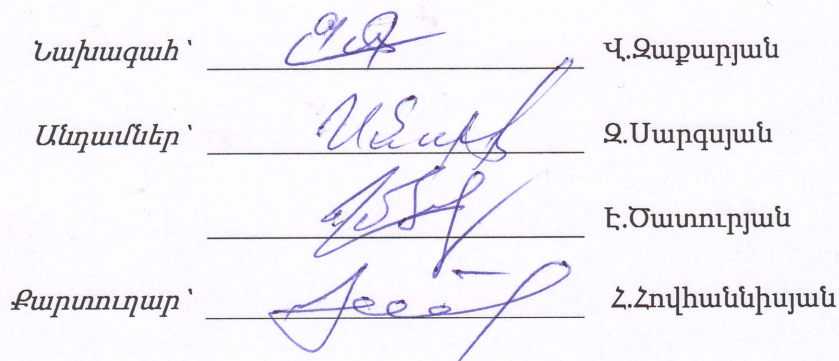 Նախագահ՝ Վ.Զաքարյան
Անդամներ՝ Զ.Սարգսյան
Է.Ծատուրյան
Քարտուղար՝ Հ.Հովհաննիսյան